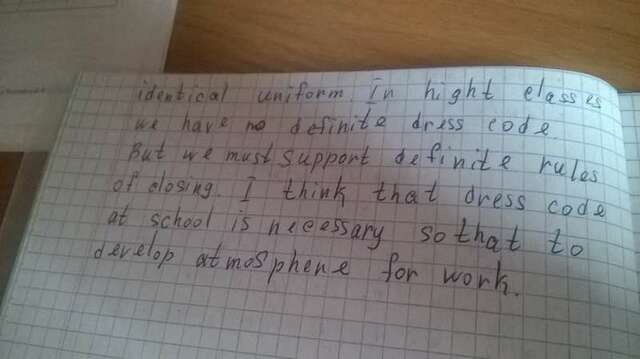 identical uniform. In hight classes
we have no definite dress code.
But we must support definite rules
of closing. I think that dress code
at school is necessary so that to
develop atmosphene for work.